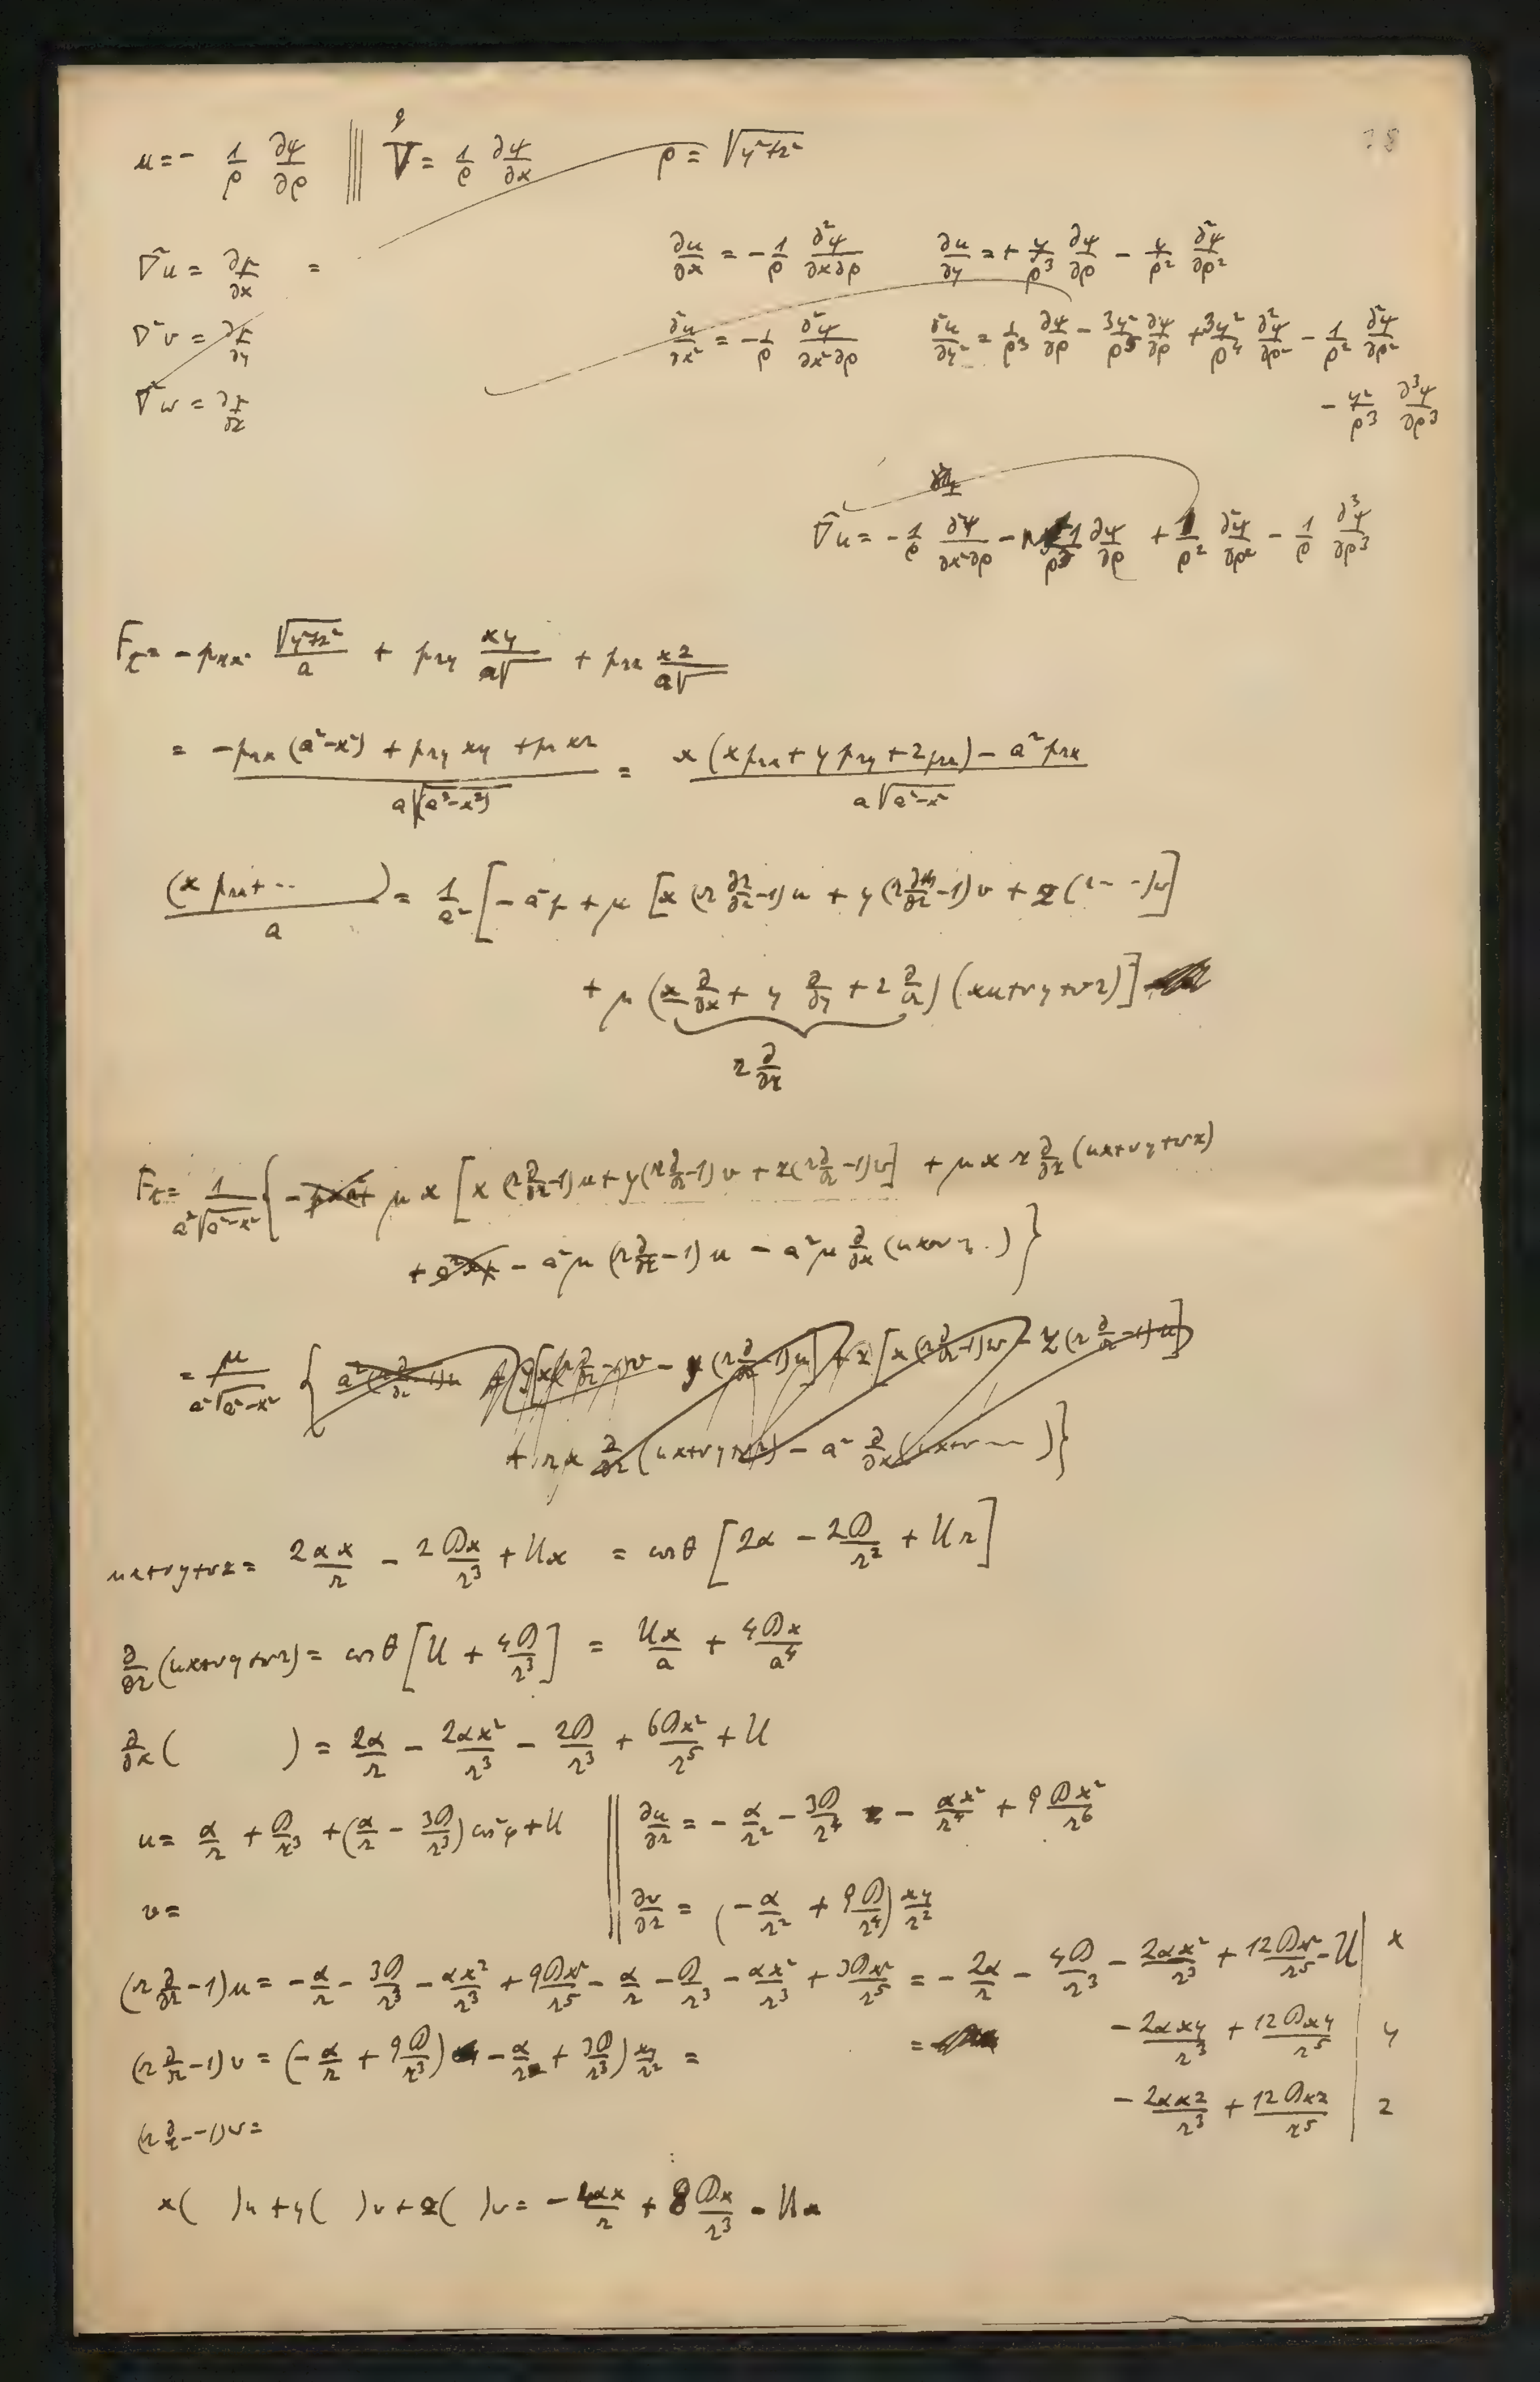 78
u = - 1/ρ ∂ψ/∂ρ ||| V = 1/ρ ∂ψ/∂x    ρ = √(y²+z²)
∇²u = ∂p/∂x =    ∂u/∂x = - 1/ρ ∂²ψ/∂x∂ρ    ∂u/∂y = + y/ρ³ ∂ψ/∂ρ - y/ρ² ∂²ψ/∂ρ²
∇²v = ∂p/∂y    ∂²u/∂x² = - 1/ρ ∂³ψ/∂x²∂ρ    ∂²u/∂y² = 1/ρ³ ∂ψ/∂ρ - 3y²/ρ⁵ ∂ψ/∂ρ + 3y²/ρ⁴ ∂²ψ/∂ρ² - 1/ρ² ∂²ψ/∂ρ²
∇²w = ∂p/∂z    - y²/ρ³ ∂³ψ/∂ρ³
∇²u = - 1/ρ ∂³ψ/∂x²∂ρ - 1/ρ³ ∂ψ/∂ρ + 1/ρ² ∂²ψ/∂ρ² - 1/ρ ∂³ψ/∂ρ³
F_t = - p_rx √(y²+z²)/a + p_ry xy/a√ + p_rz xz/a√
= (-p_rx (a²-x²) + p_ry xy + p_r xz)/(a√(a²-x²)) = (x (x p_rx + y p_ry + z p_rz) - a² p_rx)/(a√(a²-x²))
(x p_rx + ..)/a = 1/a² [ - a²p + μ [x (r ∂/∂r -1)u + y (r ∂/∂r -1)v + z ( - - )w]
+ μ (x ∂/∂x + y ∂/∂y + z ∂/∂z) (xu+vy+wz)]
r ∂/∂r
F_t = 1/(a²√(a²-x²)) { - pxa² + μx [x (r ∂/∂r -1)u + y (r ∂/∂r -1)v + z (r ∂/∂r -1)w] + μx r ∂/∂r (ux+vy+wz)
+ a²xp - a²μ (r ∂/∂r -1)u - a²μ ∂/∂x (ux+vy . ) }
= μ/(a²√(a²-x²)) { a²(r ∂/∂r -1)u + y[x(r ∂/∂r -1)v - y (r ∂/∂r -1)u] + z [x (r ∂/∂r -1)w - z (r ∂/∂r -1)u]
+ rx ∂/∂r (ux+vy+wz) - a² ∂/∂x (ux+v — ) }
ux+vy+wz = 2αx/r - 2βx/r³ + Ux = cos θ [2α - 2β/r² + Ur]
∂/∂r (ux+vy+wz) = cos θ [U + 4β/r³] = Ux/a + 4βx/a⁴
∂/∂x ( ) = 2α/r - 2αx²/r³ - 2β/r³ + 6βx²/r⁵ + U
u = α/r + β/r³ + (α/r - 3β/r³) cos²φ + U || ∂u/∂r = - α/r² - 3β/r⁴ - αx²/r⁴ + 9βx²/r⁶
v = || ∂v/∂r = (- α/r² + 9β/r⁴) xy/r²
(r ∂/∂r -1)u = - α/r - 3β/r³ - αx²/r³ + 9βx²/r⁵ - α/r - β/r³ - αx²/r³ + 3βx²/r⁵ = - 2α/r - 4β/r³ - 2αx²/r³ + 12βx²/r⁵ - U | x
(r ∂/∂r -1)v = (- α/r + 9β/r³ - α/r + 3β/r³) xy/r² = = - 2αxy/r³ + 12βxy/r⁵ | y
(r ∂/∂r -1)w = - 2αxz/r³ + 12βxz/r⁵ | z
x( )u + y( )v + z( )w = - 4αx/r + 8βx/r³ - Ux